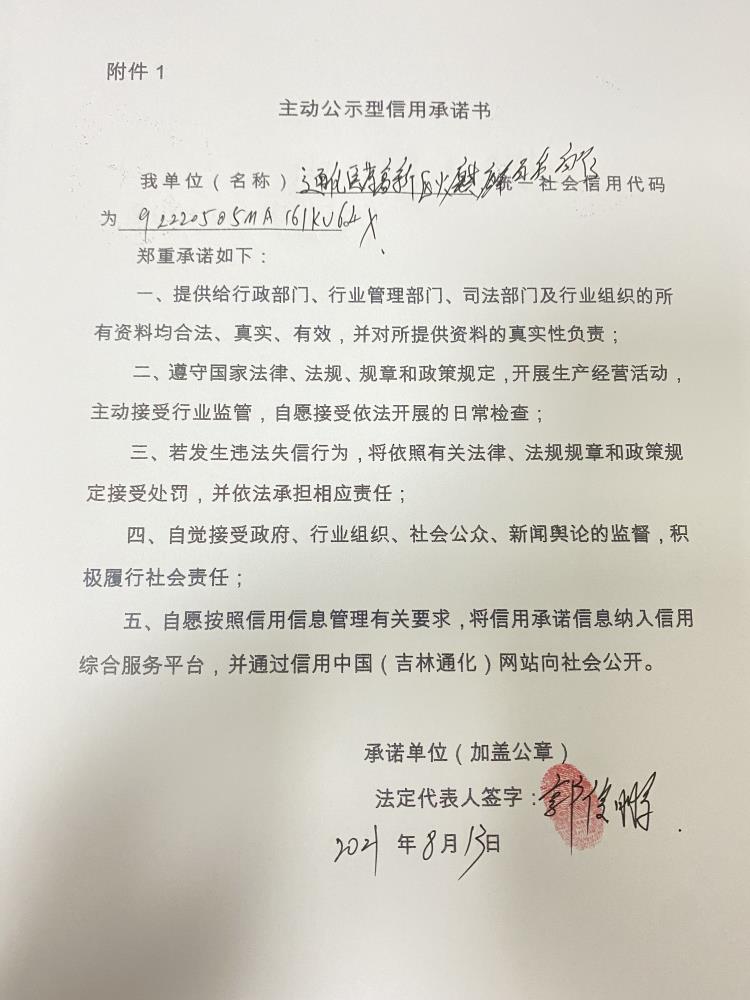 附件 1
主动公示型信用承诺书
我单位（名称）通化医药高新区火 统一社会信用代码
为 92220505MA161KU62X
郑重承诺如下：
一、提供给行政部门、行业管理部门、司法部门及行业组织的所
有资料均合法、真实、有效，并对所提供资料的真实性负责；
二、遵守国家法律、法规、规章和政策规定，开展生产经营活动，
主动接受行业监管，自愿接受依法开展的日常检查；
三、若发生违法失信行为，将依照有关法律、法规规章和政策规
定接受处罚，并依法承担相应责任；
四、自觉接受政府、行业组织、社会公众、新闻舆论的监督，积
极履行社会责任；
五、自愿按照信用信息管理有关要求，将信用承诺信息纳入信用
综合服务平台，并通过信用中国（吉林通化）网站向社会公开。
承诺单位（加盖公章）
法定代表人签字：郭俊
2021 年 8 月 13 日